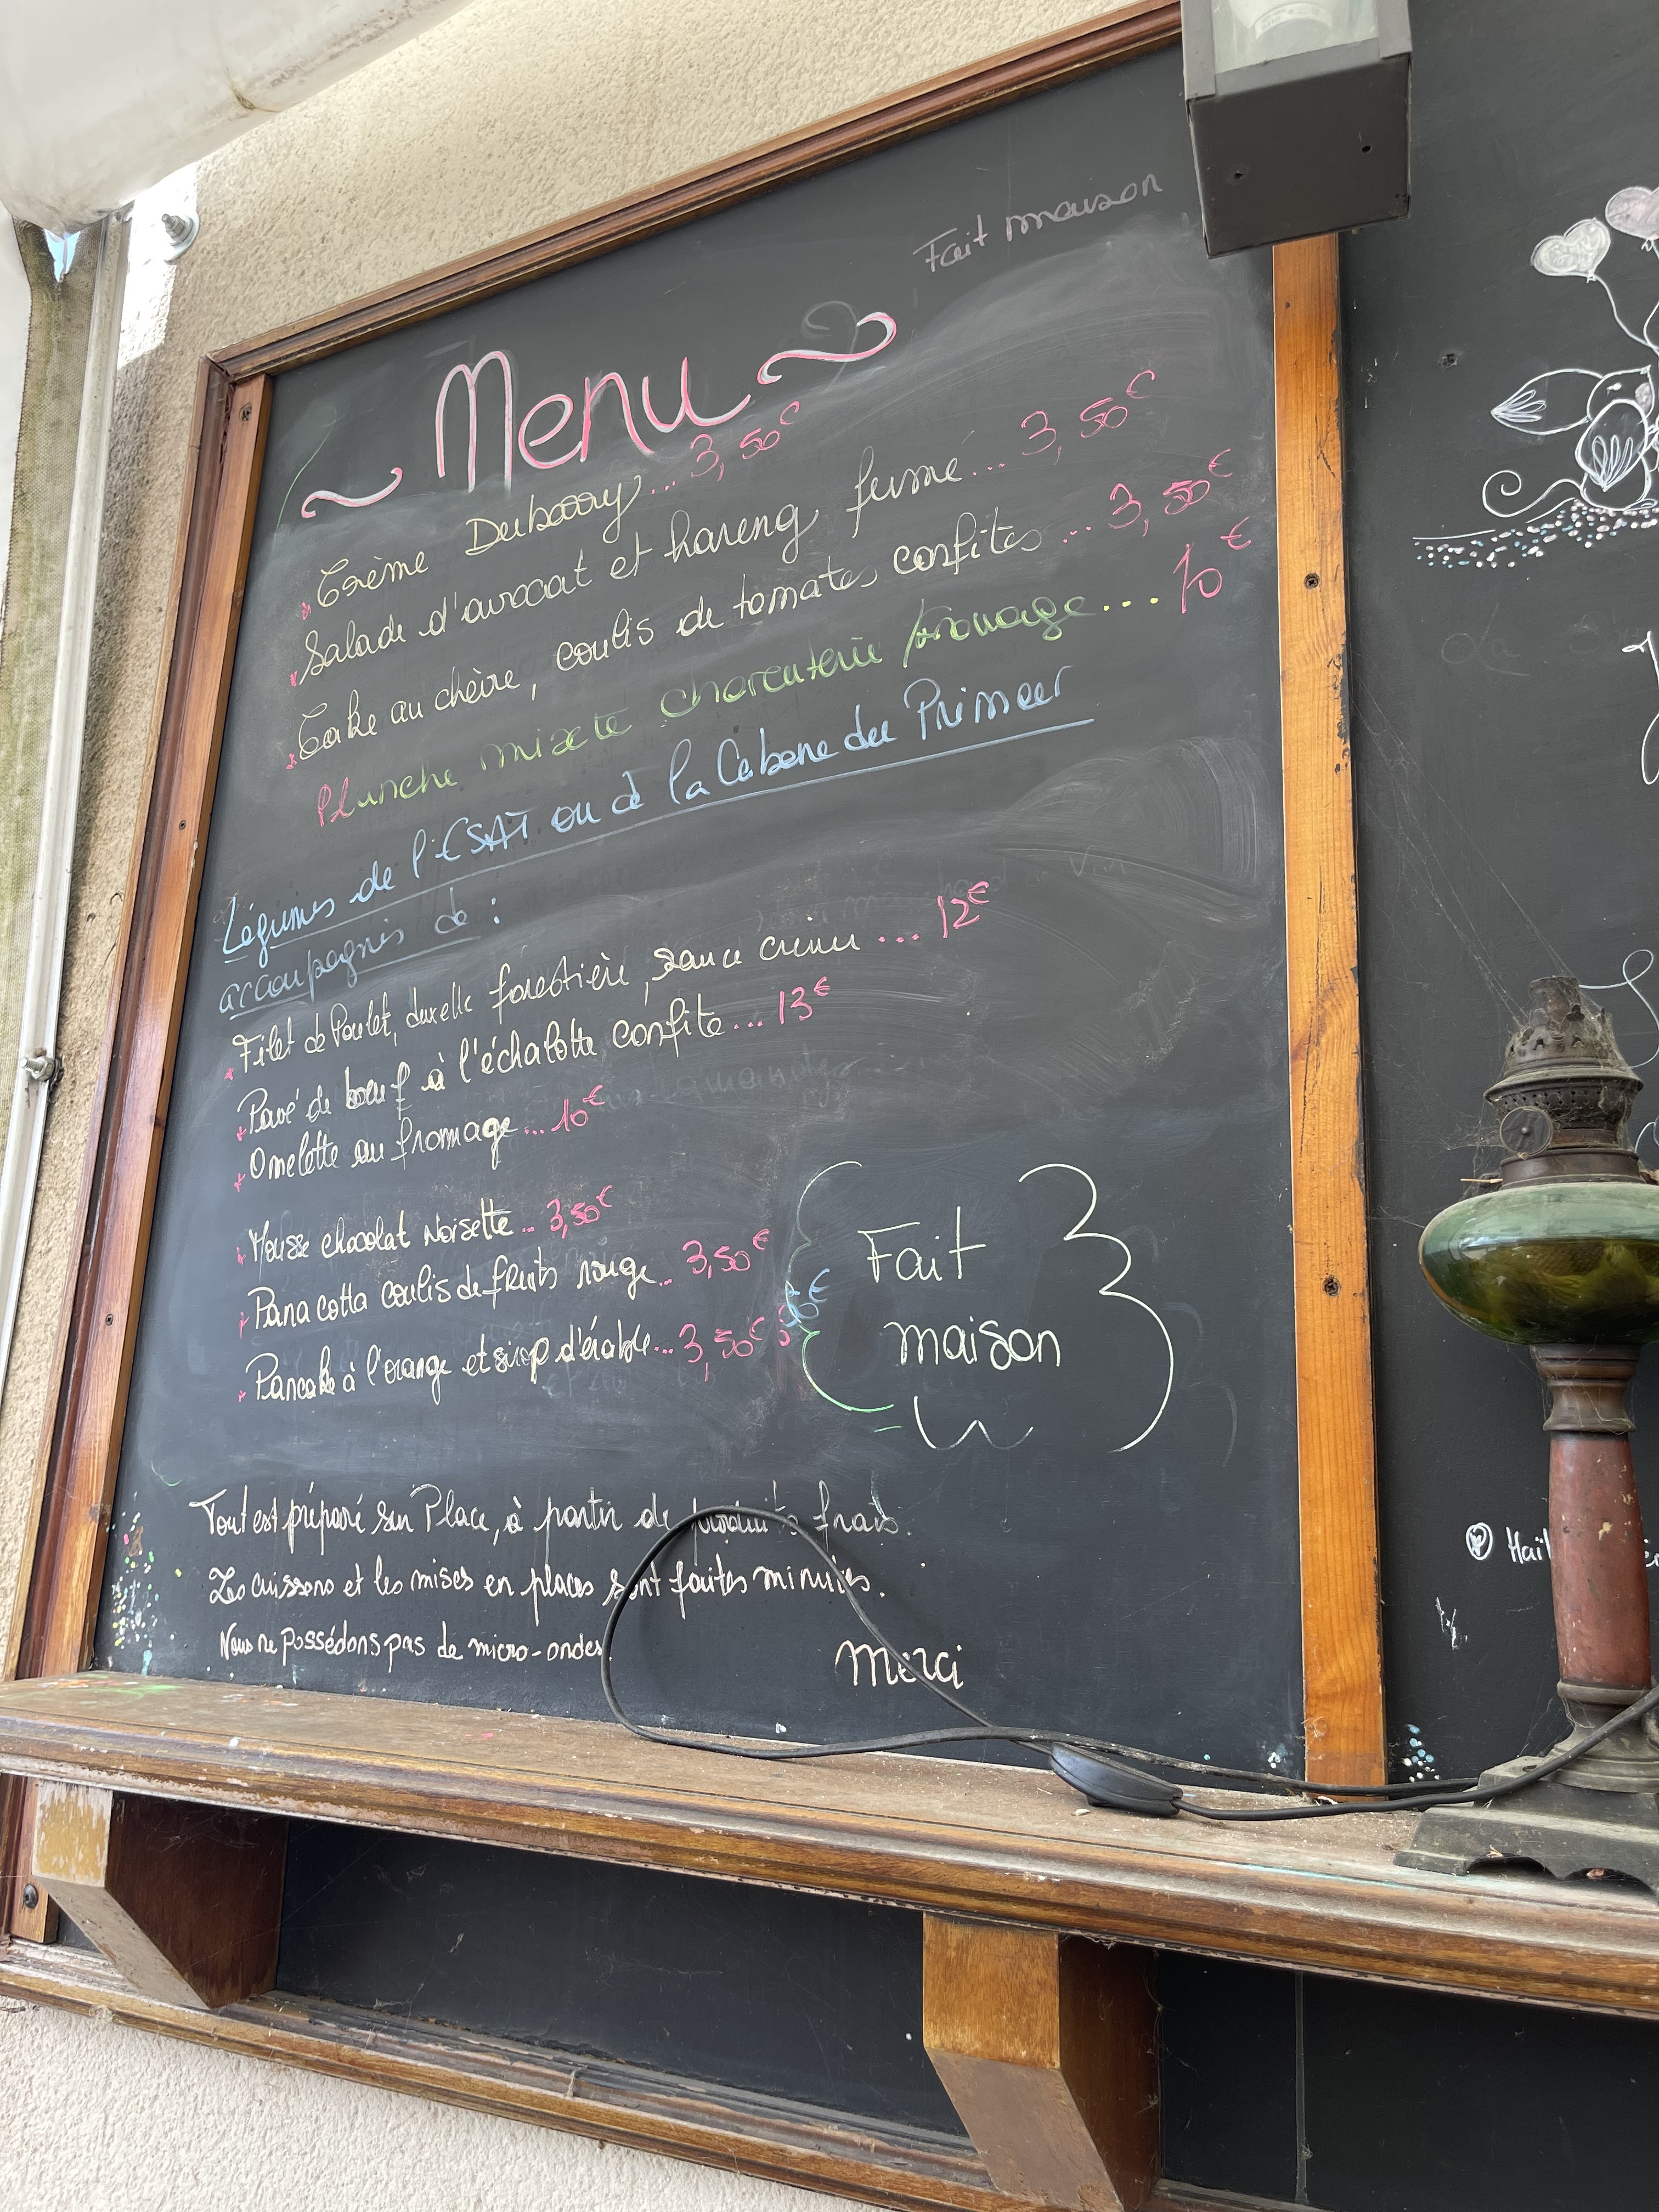 Fait maison
Menu
Crème Dubarry... 3,50€
Salade d'avocat et hareng fumé... 3,50€
Cake au chèvre, coulis de tomates confites ... 3,50€
Planche mixte charcuterie fromage... 10€
Légumes de l'ESAT ou à la Cabane du Primeur
accompagnés de :
Filet de Poulet, duxelle forestière, sauce crème ... 12€
Pavé de boeuf à l'échalotte confite ... 13€
Omelette au fromage ... 10€
Mousse chocolat Noisette ... 3,50€
Pana cotta coulis de fruits rouge... 3,50€
Pancake à l'orange et sirop d'érable... 3,50€
Fait
maison
Tout est préparé sur Place, à partir de produits frais.
Les cuissons et les mises en places sont faites minutes.
Nous ne Possédons pas de micro-ondes.
Merci